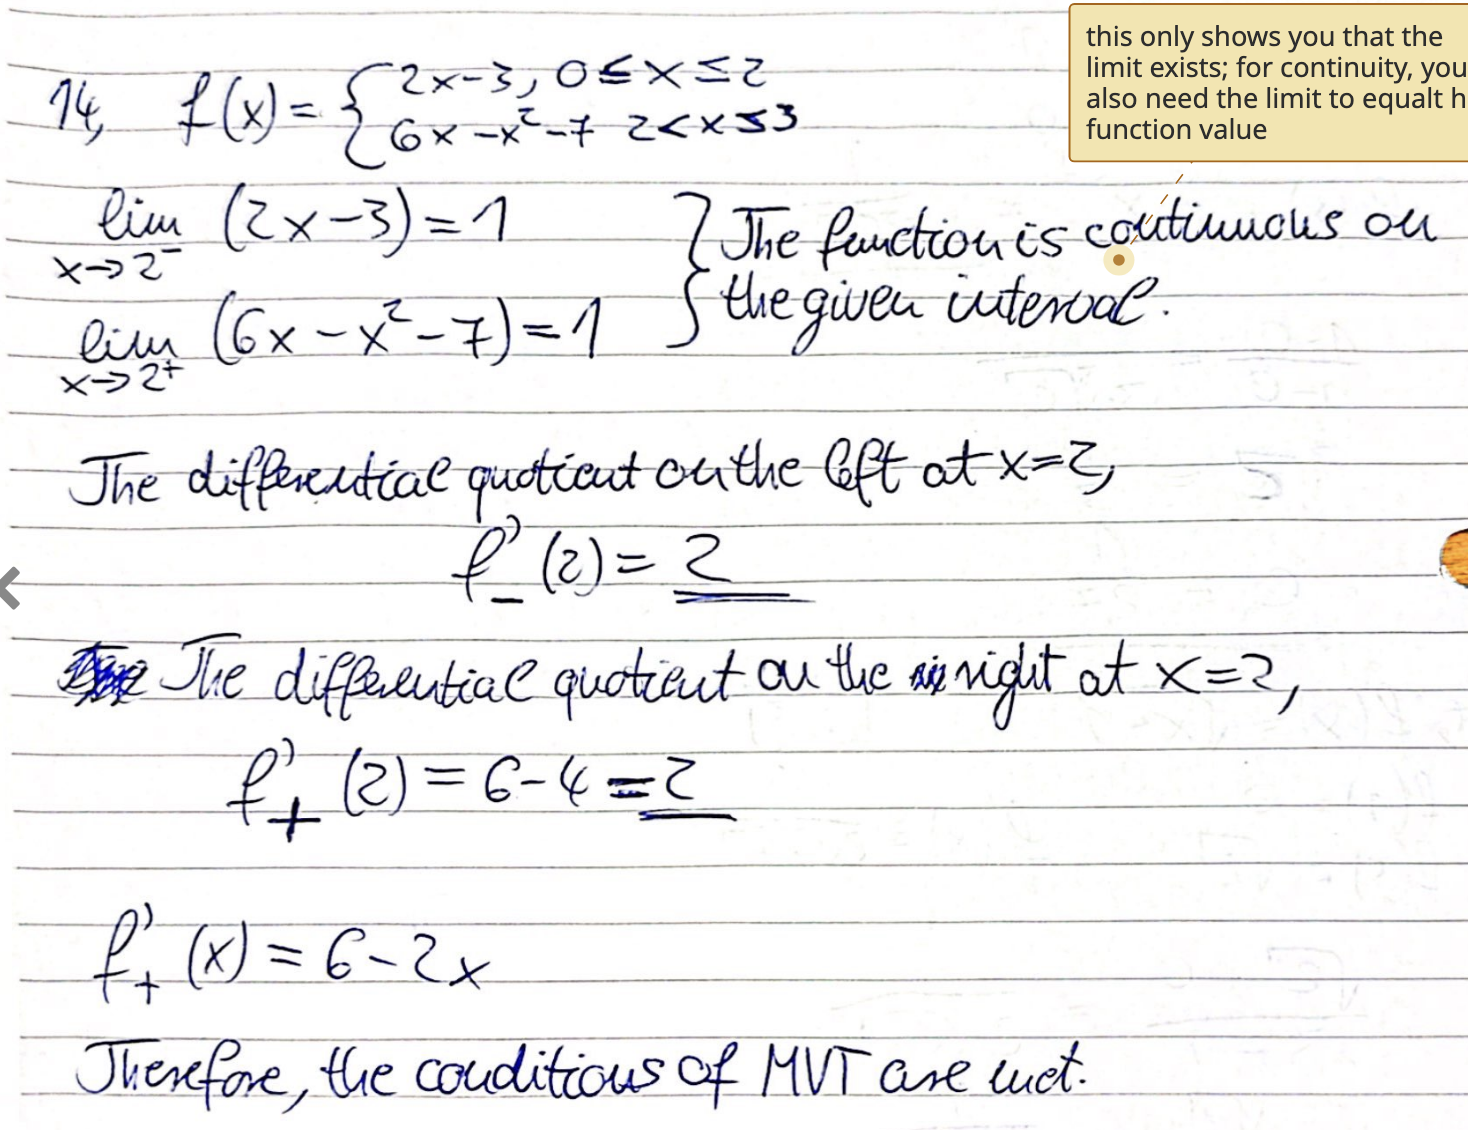 this only shows you that the
limit exists; for continuity, you
also need the limit to equalt h
function value
14, f(x) = { 2x-3, 0 ≤ x ≤ 2
6x -x² -7 2 < x ≤ 3
lim x→2⁻ (2x-3) = 1 } The function is continuous on
the given interval.
lim x→2⁺ (6x - x² - 7) = 1
The differential quotient on the left at x=2,
f'₋ (2) = 2
The differential quotient on the right at x=2,
f'₊ (2) = 6-4 = 2
f'₊ (x) = 6-2x
Therefore, the conditions of MVT are met.